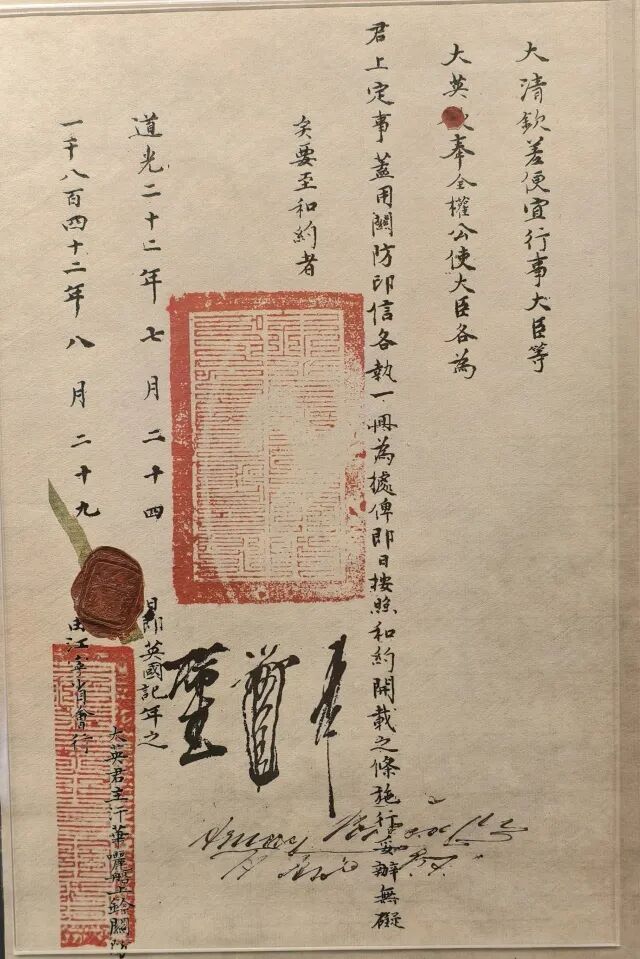 大清欽差便宜行事大臣等
大英奉全權公使大臣各為
君上定事蓋用關防印信各執一冊為據俾即日按照和約開載之條施行妥辦無礙
矣要至和約者
道光二十二年七月二十四日即英國記年之
一千八百四十二年八月二十九由江寧省會行
大英君主汗華囇船上鈐關防
Henry